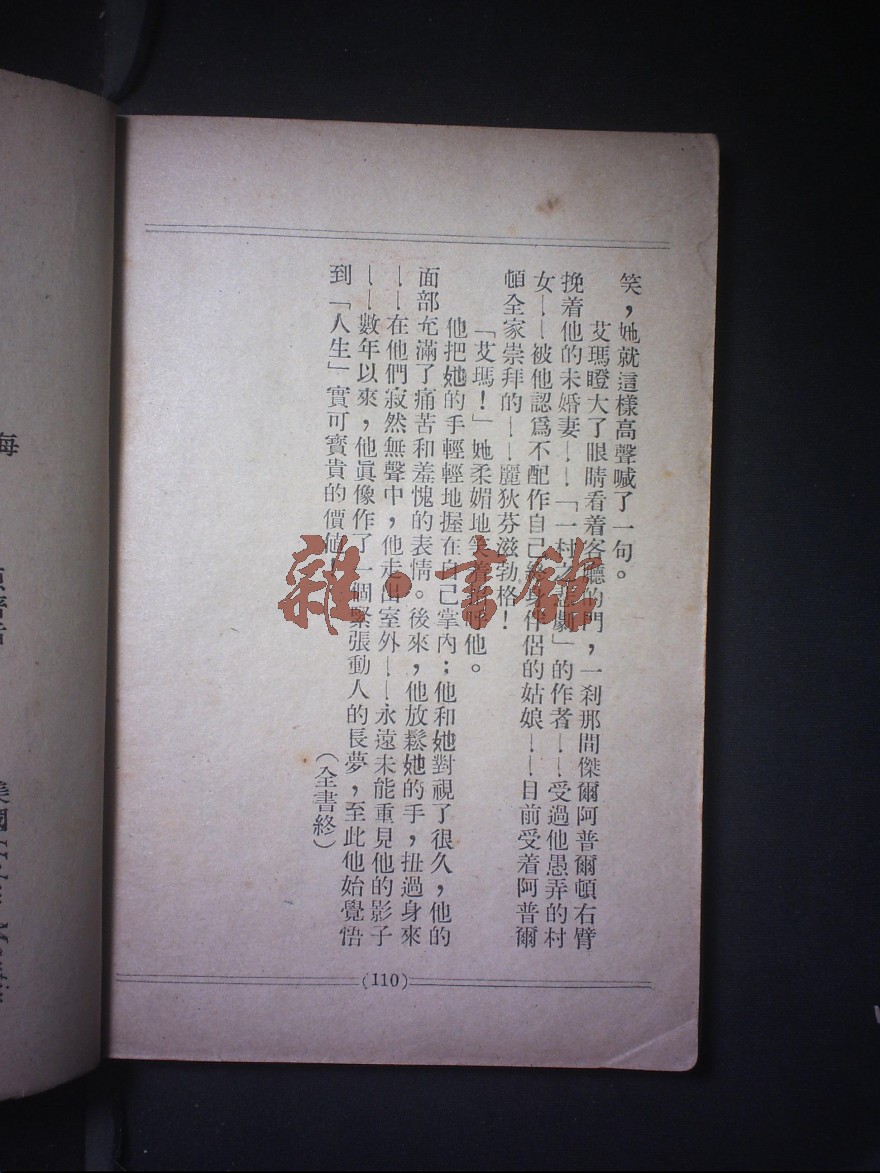 笑，她就這樣高聲喊了一句。
艾瑪瞪大了眼睛看着客廳的門，一刹那間傑爾阿普爾頓右臂
挽着他的未婚妻——「一村女悲劇」的作者——受過他愚弄的村
女——被他認爲不配作自己終身伴侶的姑娘——目前受着阿普爾
頓全家崇拜的——麗狄芬滋勃格！
「艾瑪！」她柔媚地笑着招呼他。
他把她的手輕輕地握在自己掌內；他和她對視了很久，他的
面部充滿了痛苦和羞愧的表情。後來，他放鬆她的手，扭過身來
——在他們寂然無聲中，他走出室外——永遠未能重見他的影子
——數年以來，他眞像作了一個緊張動人的長夢，至此他始覺悟
到「人生」實可寶貴的價值
（全書終）
(110)
雜·書館
美國